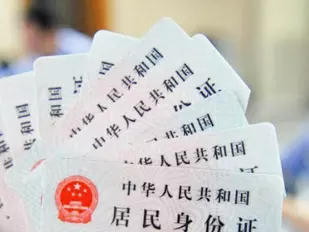 中华人民共和国
证
中华人民共和国
中华人民共和国
中华人民共和国
居民身份证